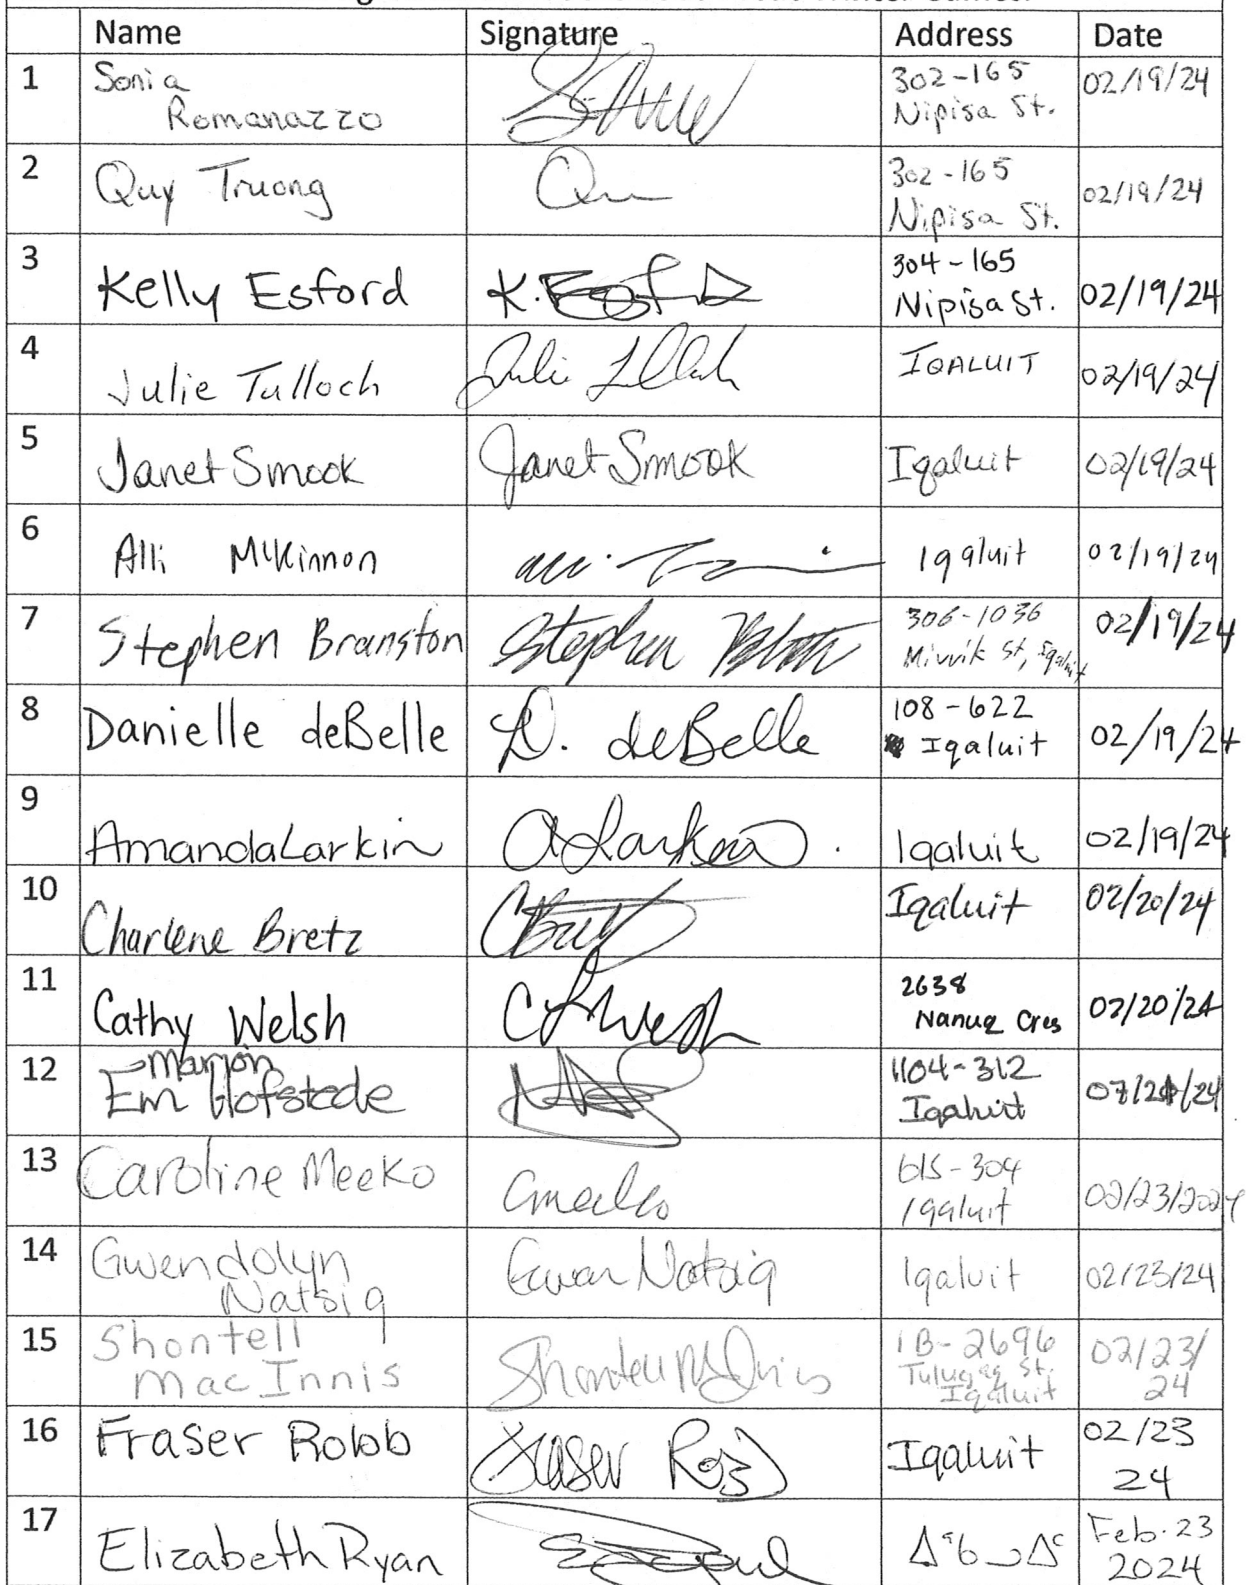 Name Signature Address Date
1 Sonia Romanazzo 302-165 Nipisa St. 02/19/24
2 Quy Truong Qu 302-165 Nipisa St. 02/19/24
3 Kelly Esford K. Esford 304-165 Nipisa St. 02/19/24
4 Julie Tulloch Julie Tulloch IQALUIT 02/19/24
5 Janet Smook Janet Smook Iqaluit 02/19/24
6 Alli McKinnon Iqaluit 02/19/24
7 Stephen Branston Stephen 306-1036 Mivvik St, Iqaluit 02/19/24
8 Danielle deBelle D. deBelle 108-622 Iqaluit 02/19/24
9 Amanda Larkin A Larkin Iqaluit 02/19/24
10 Charlene Bretz Iqaluit 02/20/24
11 Cathy Welsh 2638 Nanuq Cres 02/20/24
12 Marion Em Hofstede 1104-312 Iqaluit
13 Caroline Meeko CMeeko 615-304 Iqaluit 02/23/2024
14 Gwendolyn Natsiq Gwen Natsiq Iqaluit 02/23/24
15 Shontell MacInnis Shontell 1B-2696 Tulugaq St. Iqaluit 02/23/24
16 Fraser Robb Fraser 02/23 24 Iqaluit
17 Elizabeth Ryan ᐃᖃᓗᐃᑦ Feb. 23 2024